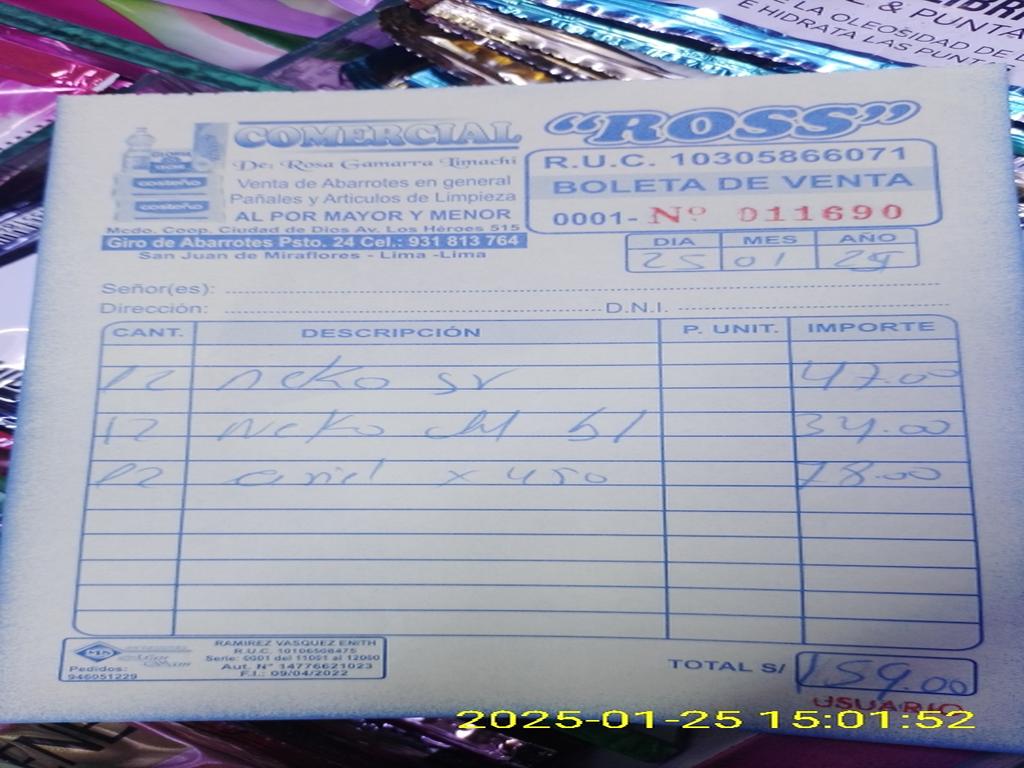 & PUNTA
E LA OLEOSIDAD DE
E HIDRATA LAS PUNT
COMERCIAL "ROSS"
De: Rosa Gamarra Limachi
Venta de Abarrotes en general
Pañales y Articulos de Limpieza
AL POR MAYOR Y MENOR
Mcdo. Coop. Ciudad de Dios Av. Los Héroes 515
Giro de Abarrotes Psto. 24 Cel.: 931 813 764
San Juan de Miraflores - Lima -Lima
costeño
costeño
R.U.C. 10305866071
BOLETA DE VENTA
0001- Nº 011690
DIA MES AÑO
25 01 25
Señor(es):
Dirección: D.N.I.
CANT. DESCRIPCIÓN P. UNIT. IMPORTE
12 neko sr 47.00
12 neko ch bl 34.00
12 ariel x 450 78.00
RAMIREZ VASQUEZ ENITH
R.U.C. 10106508475
Serie: 0001 del 11001 al 12000
Aut. N° 14776621023
F.I.: 09/04/2022
Pedidos:
946051229
TOTAL S/ 159.00
USUARIO
2025-01-25 15:01:52